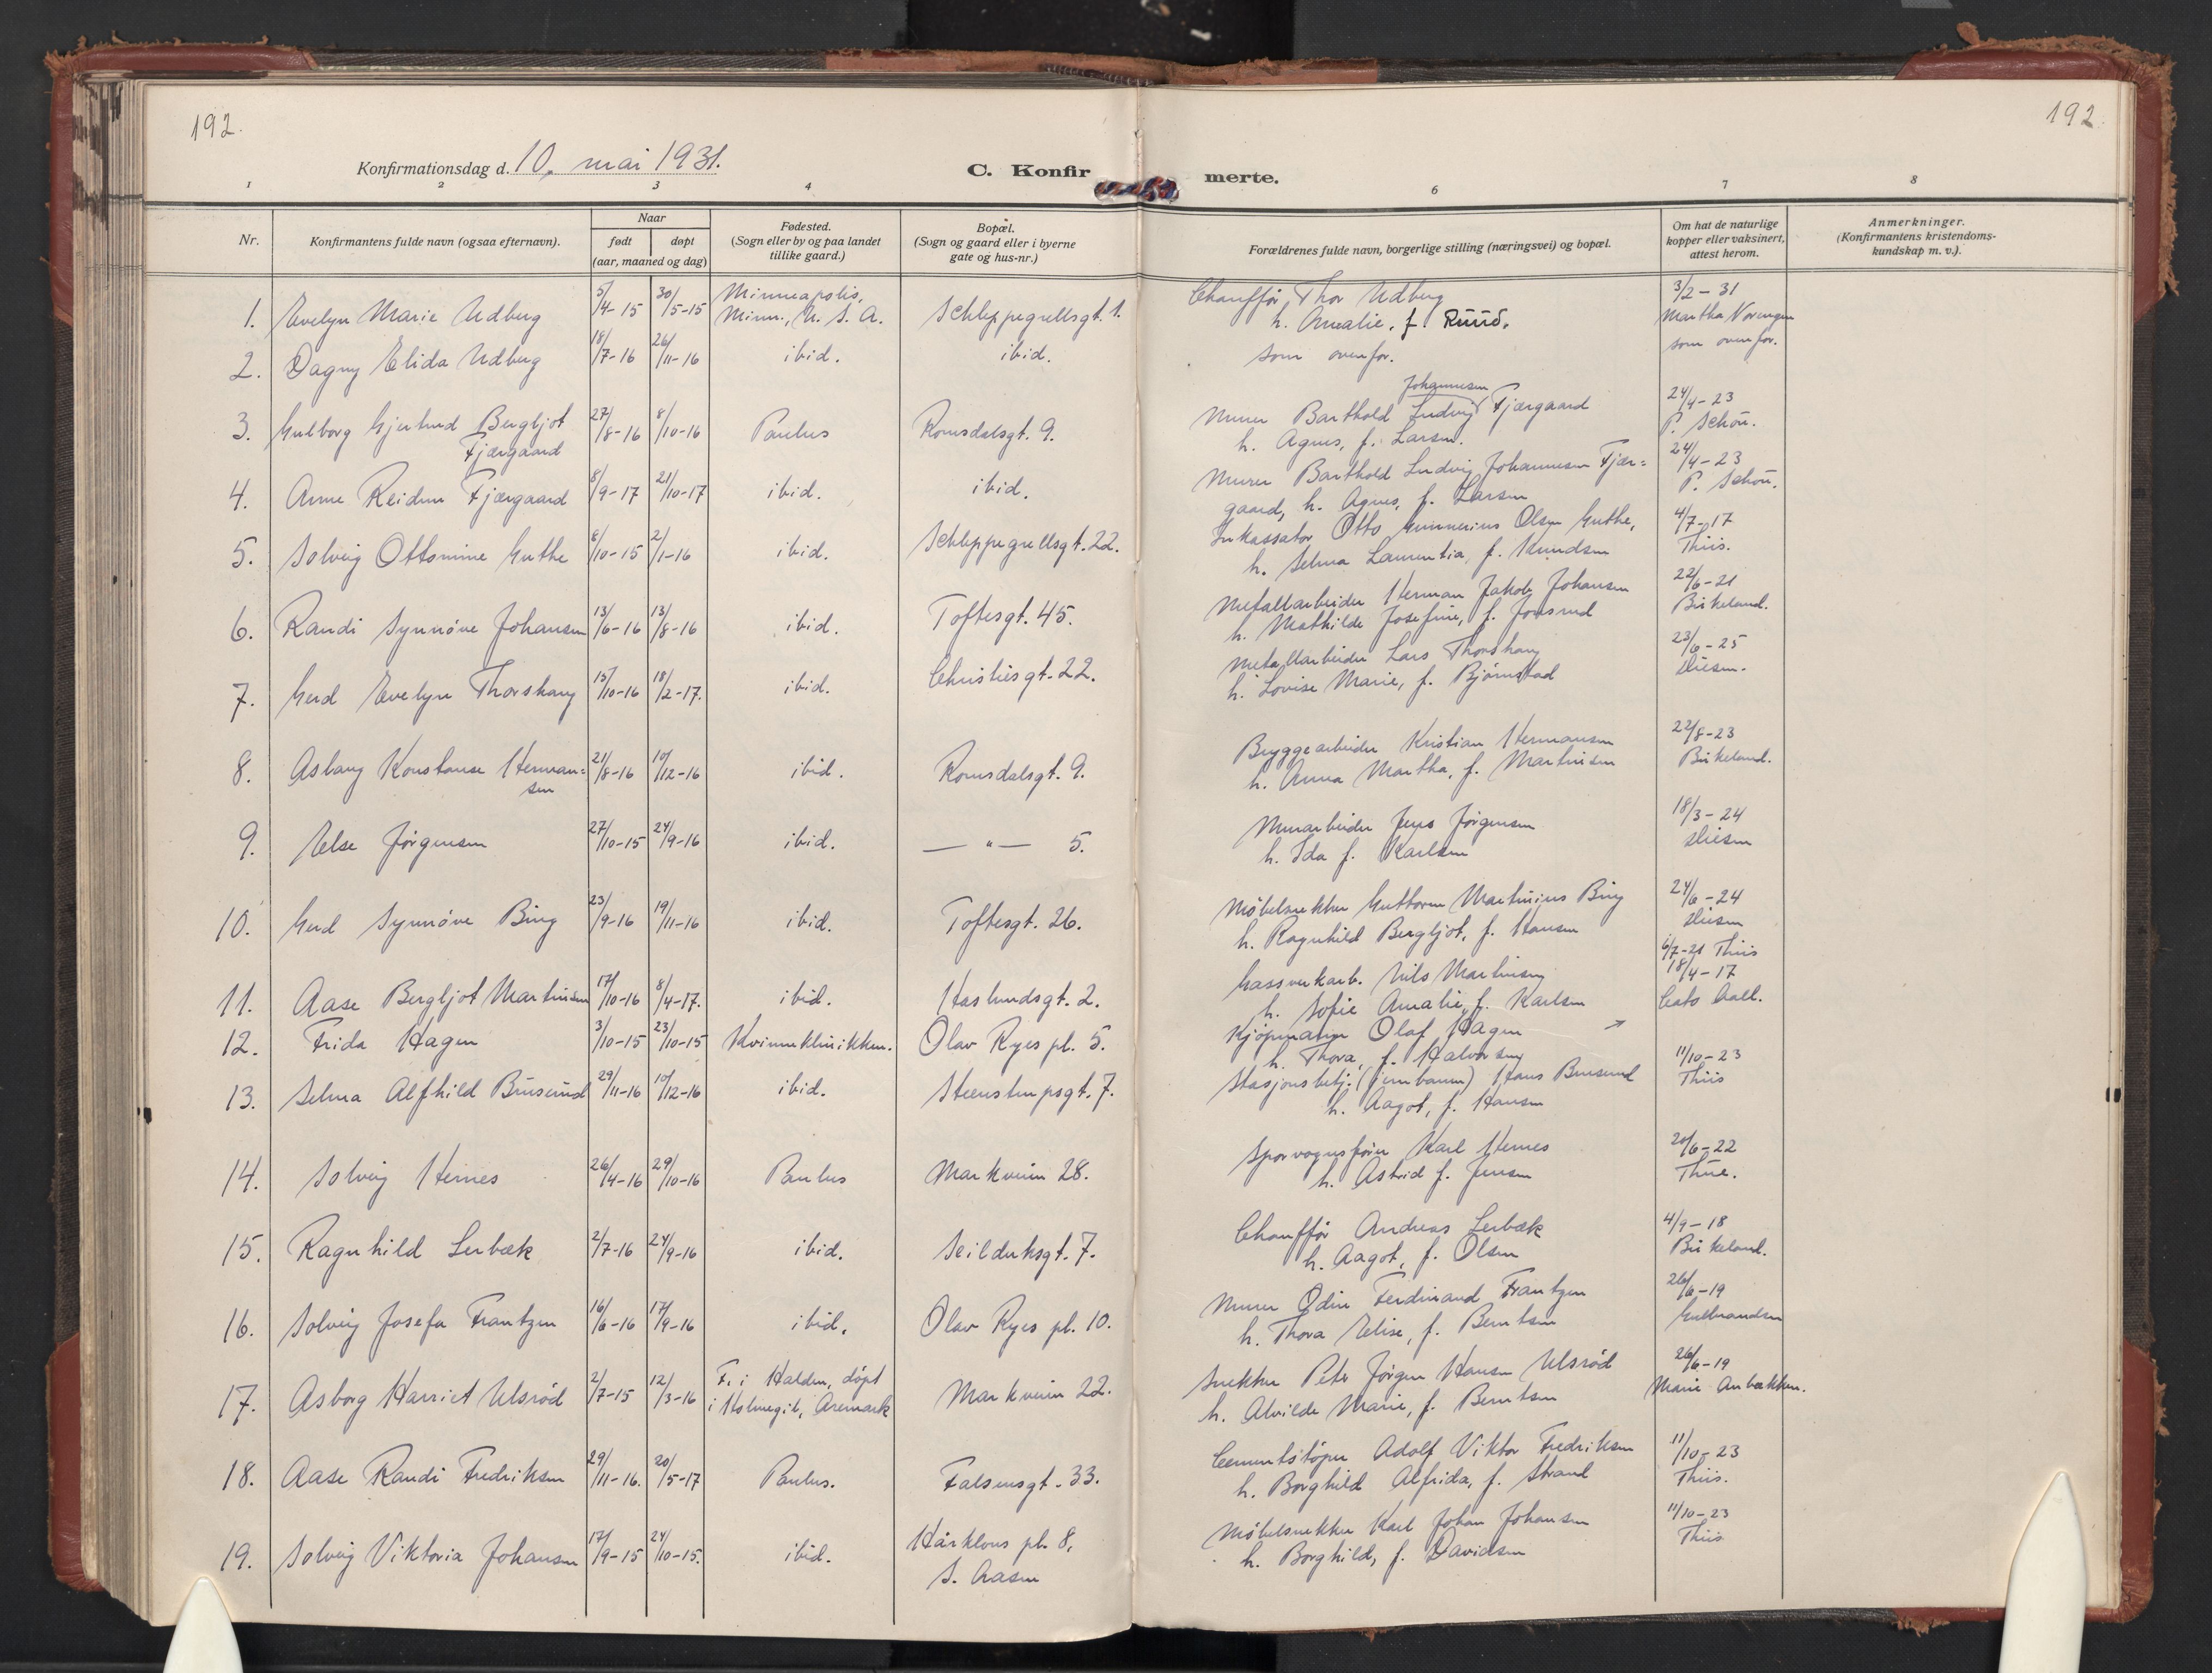 192.
192.
Konfirmationsdag d. 10. mai 1931.
C. Konfirmerte.
1 2 3 4 6 7 8
Nr.
Konfirmantens fulde navn (ogsaa efternavn).
Naar
født døpt
(aar, maaned og dag)
Fødested.
(Sogn eller by og paa landet
tillike gaard.)
Bopæl.
(Sogn og gaard eller i byerne
gate og hus-nr.)
Forældrenes fulde navn, borgerlige stilling (næringsvei) og bopæl.
Om hat de naturlige
kopper eller vaksinert,
attest herom.
Anmerkninger.
(Konfirmantens kristendoms-
kundskap m. v.).
1. Evelyn Marie Udberg 5/4-15 30/5-15 Minneapolis, Minn., U. S. A. Schleppegrellsgt. 1.
Chauffør Thor Udberg
h. Amalie, f. Ruud.
3/2-31
Martha
2. Dagny Elida Udberg 18/7-16 26/11-16 ibid. ibid.
som ovenfor.
som ovenfor.
3. Gulborg Gjertrud Bergljot
Fjærgaard 27/8-16 8/10-16 Paulus Romsdalsgt. 9.
Johannesen
Murer Barthold Ludvig Fjærgaard
h. Agnes, f. Larsen.
24/4-23
P. Schou.
4. Anne Reidun Fjærgaard 8/9-17 21/10-17 ibid. ibid.
Murer Barthold Ludvig Johannesen Fjær=
gaard, h. Agnes, f. Larsen
24/4-23
P. Schou.
5. Solveig Ottomine Guthe 8/10-15 2/1-16 ibid. Schleppegrellsgt. 22.
Inkassator Otto Gunnerius Olsen Guthe,
h. Selma Laurentia, f. Knudsen
4/7-17
Thiis.
6. Randi Synnöve Johansen 13/6-16 13/8-16 ibid. Toftesgt. 45.
Metallarbeider Herman Jakob Johansen
h. Mathilde Josefine, f. Jonsrud
22/6-21
Birkeland.
7. Gerd Evelyn Thorshaug 15/10-16 18/2-17. ibid. Christiesgt. 22.
Metallarbeider Lars Thorshaug
h. Lovise Marie, f. Bjørnstad
23/6-25
8. Aslaug Konstanse Herman=
sen 21/8-16 10/12-16 ibid. Romsdalsgt. 9.
Bryggearbeider Kristian Hermansen
h. Anna Martha, f. Martinsen
22/8-23
Birkeland.
9. Else Jørgensen 27/10-15 24/9-16 ibid. — " — 5.
Murarbeider Jens Jörgensen
h. Ida f. Karlsen
18/3-24
10. Gerd Synnöve Bing 23/9-16 19/11-16 ibid. Toftesgt. 26.
Möbelsnekker Guttorm Martinius Bing
h. Ragnhild Bergljot, f. Hansen
24/6-24
11. Aase Bergljot Martinsen 17/10-16 8/4-17. ibid. Haslundsgt. 2.
Gassverkarb. Nils Martinsen
h. Sofie Amalie, f. Karlsen
6/7-21 Thiis
18/4-17
Cato Aall.
12. Frida Hagen 3/10-15 23/10-15 Kvinneklinikken. Olav Ryes pl. 5.
Kjöpmann Olaf Hagen
h. Thora, f. Halvorsen
13. Selma Alfhild Bruserud 29/11-16 10/12-16 ibid. Steenstrupsgt. 7.
Stasjonsbetj. (jernbanen) Hans Bruserud
h. Aagot, f. Hansen
11/10-23
Thiis
14. Solveig Hernes 26/4-16 29/10-16 Paulus Markveien 28.
Sporvognsfører Karl Hernes
h. Astrid f. Jensen
20/6-22
15. Ragnhild Lerbæk 2/7-16 24/9-16 ibid. Seilduksgt. 7.
Chauffør Andreas Lerbæk
h. Aagot, f. Olsen
4/9-18
Birkeland.
16. Solveig Josefa Frantzen 16/6-16 17/9-16 ibid. Olav Ryes pl. 10.
Murer Odin Ferdinand Frantzen
h. Thora Elise, f. Berntsen
26/6-19
Gulbrandsen
17. Asborg Harriet Ulsröd 2/7-15 12/3-16 F. i Halden, döpt
i Holmegil, Aremark Markveien 22.
Snekker Peter Jørgen Hansen Ulsröd
h. Alvilde Marie, f. Berntsen
26/6-19
Marie Anbækken.
18. Aase Randi Fredriksen 29/11-16. 20/5-17 Paulus. Falsensgt. 33.
Cementstöper Adolf Viktor Fredriksen
h. Borghild Alfrida, f. Strand
11/10-23
Thiis.
19. Solveig Viktoria Johansen 17/9-15 24/10-15. ibid. Hårklous pl. 8,
S. Aasen
Möbelsnekker Karl Johan Johansen
h. Borghild, f. Davidsen
11/10-23
Thiis